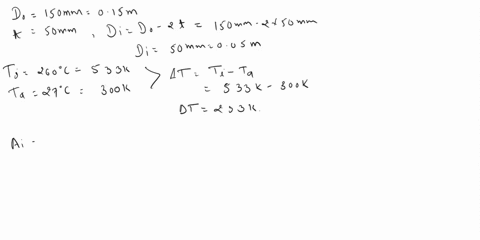 D₀ = 150mm = 0.15m
t = 50mm , Di = D₀ - 2t = 150mm - 2×50mm
Di = 50mm = 0.05m
Ti = 260°C = 533K
ΔT = Ti - Ta
Ta = 27°C = 300K
= 533K - 300K
ΔT = 233K.
Ai -